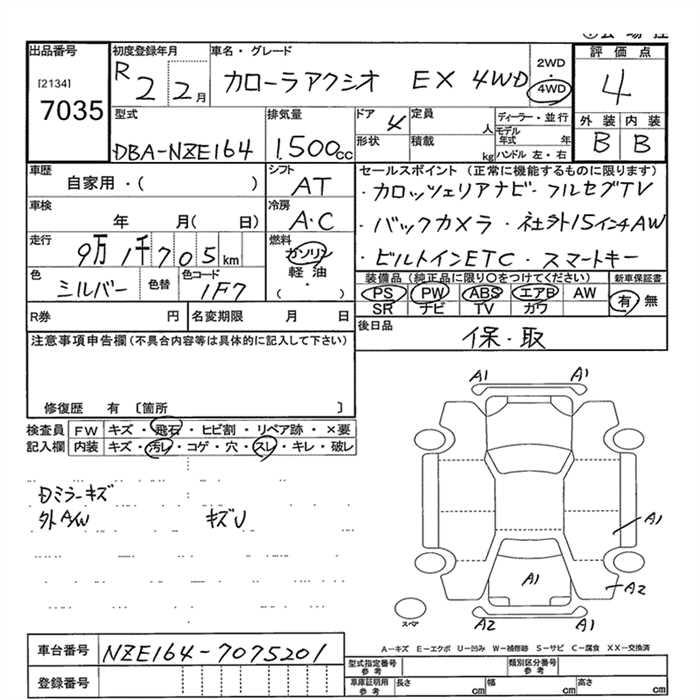 出品番号
[2134]
7035
初度登録年月
R 2 2月
車名・グレード
カローラアクシオ EX 4WD
2WD
4WD
評価点
4
外装 内装
B B
型式
DBA-NZE164
排気量
1.500cc
ドア 4
形状
定員 人
積載 kg
ディーラー・並行
モデル年式 年
ハンドル 左・右
車歴
自家用・( )
シフト
AT
車検
年 月( 日)
冷房
A・C
走行
9万1千705km
燃料
ガソリン
軽油
( )
色
シルバー
色替
色コード
1F7
セールスポイント (正常に機能するものに限ります)
・カロッツェリアナビ・フルセグTV
・バックカメラ ・社外15インチAW
・ビルトインETC ・スマートキー
装備品(純正品に限り○をつけてください) 新車保証書
PS PW ABS エアB AW
SR ナビ TV カワ
有 無
R券 円
名変期限 月 日
後日品
保・取
注意事項申告欄(不具合内容等は具体的に記入して下さい)
修復歴 有 [箇所 ]
検査員記入欄
FW キズ・飛石・ヒビ割・リペア跡・×要
内装 キズ・汚レ・コゲ・穴・スレ・キレ・破レ
ミラーキズ
外A/W キズU
A1 A1
A1
A1
A2
A2 A1
スペア
A－キズ E－エクボ U－凹み W－補修跡 S－サビ C－腐食 XX－交換済
車台番号 NZE164-7075201
登録番号
型式指定番号 参考
類別区分番号 参考
車庫証明用 参考
長さ cm 幅 cm 高さ cm